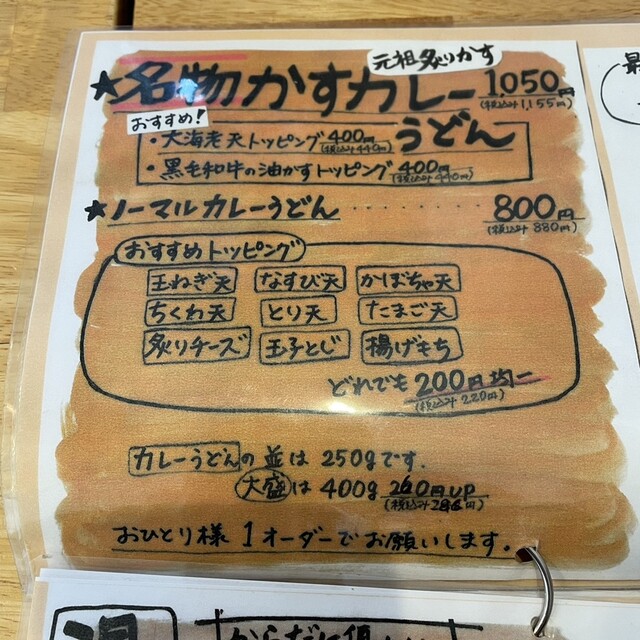 元祖炙りかす
★名物かすカレーうどん 1050円
(税込み1,155円)
おすすめ!
・大海老天トッピング400円
(税込み440円)
・黒毛和牛の油かすトッピング400円
(税込み440円)
★ノーマルカレーうどん ・・・・・・・・ 800円
(税込み880円)
おすすめトッピング
玉ねぎ天 なすび天 かぼちゃ天
ちくわ天 とり天 たまご天
炙りチーズ 玉子とじ 揚げもち
どれでも200円均一
(税込み220円)
カレーうどんの並は250gです.
大盛は400g 260円UP
(税込み286円)
おひとり様1オーダーでお願いします。